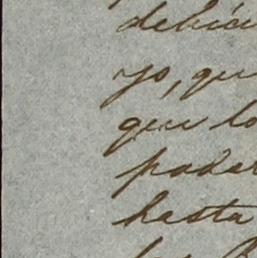 debia
yo, que
que lo
poder
hasta